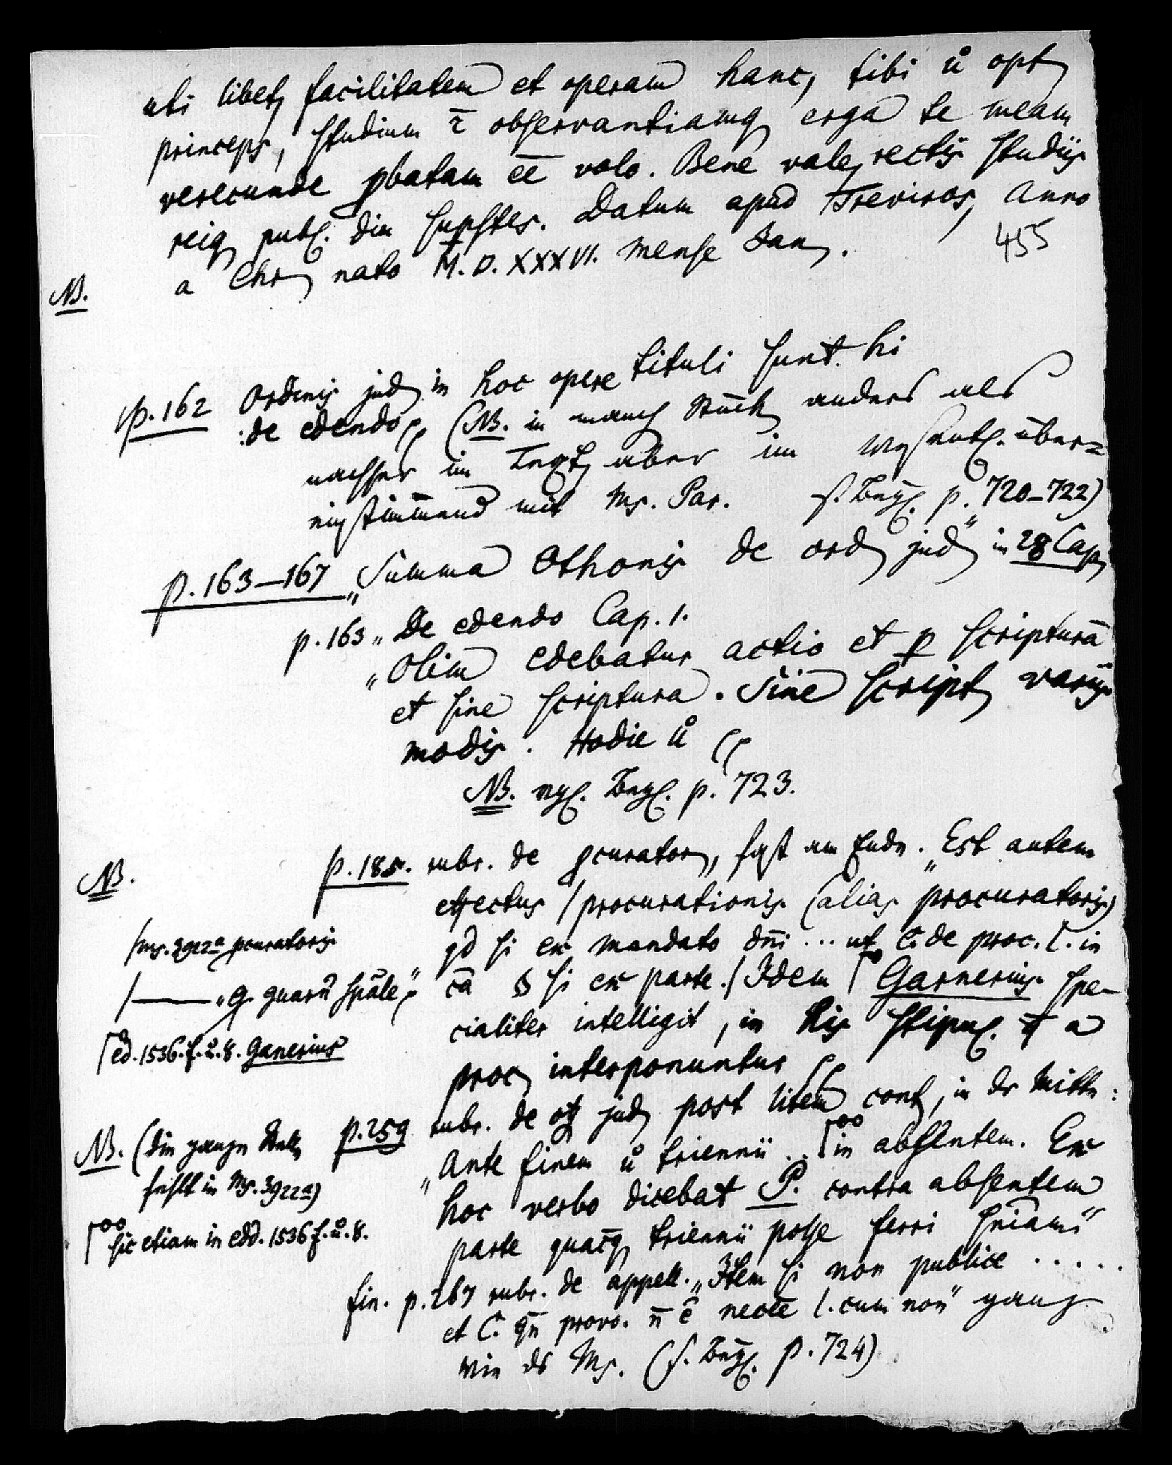 uti libet facilitatem et operam hanc, tibi u̇ opt
princeps, studium c̄ observantiamq erga te meam
verecunde pbatam ēē volo. Bene vale, rectis studijs
reiq publ. diu supstes. Datum apud Treviros, Anno
a Chr nato M.D.XXXVI. mense Jan.
455
NB.
p. 162 Ordinis jud in hoc opere tituli sunt hi
:de edendo (NB. in manch Stück anders als
nachher im Text, aber im Wesentl. über=
einstimmend mit Ms. Par. s. Bugl. p. 720–722)
p. 163–167 „Summa Othonis de ord jud" in 28 Cap
p. 163 „De edendo Cap. 1.
„Olim edebatur actio et p scripturā
et sine scriptura. Sine script varijs
modis. Hodie u̇
NB. vgl. Bugl. p. 723.
NB.
p. 185. rubr. de pcurator, sqt am Ende. „Est autem
effectus /procurationis (alias procuratoris)
qd si ex mandato dn̄i ... ut C. de proc. l. in
cā s si ex parte. / Idem Garnerius spe-
cialiter intelligit, in his stipul. q a
proc interponuntur
/ms. 3922a pcuratoris
ed. 1536. f. u. 8. Ganerius
NB. (die ganze Stelle
fehlt in Ms. 3922a)
p. 259 rubr. de off jud post litem cont, in der Mitte:
„Ante finem u̇ triennii .. in absentem. Ex
hoc verbo dicebat P. contra absentem
parte triennii posse ferri sn̄iam"
sic etiam in edd. 1536 f. u. 8.
fin. p. 267 rubr. de appell. „Item si non publice .....
et C. qn̄ provo. n̄ ē necē l. cum non" ganz
wie das Ms. (s. Bugl. p. 724)